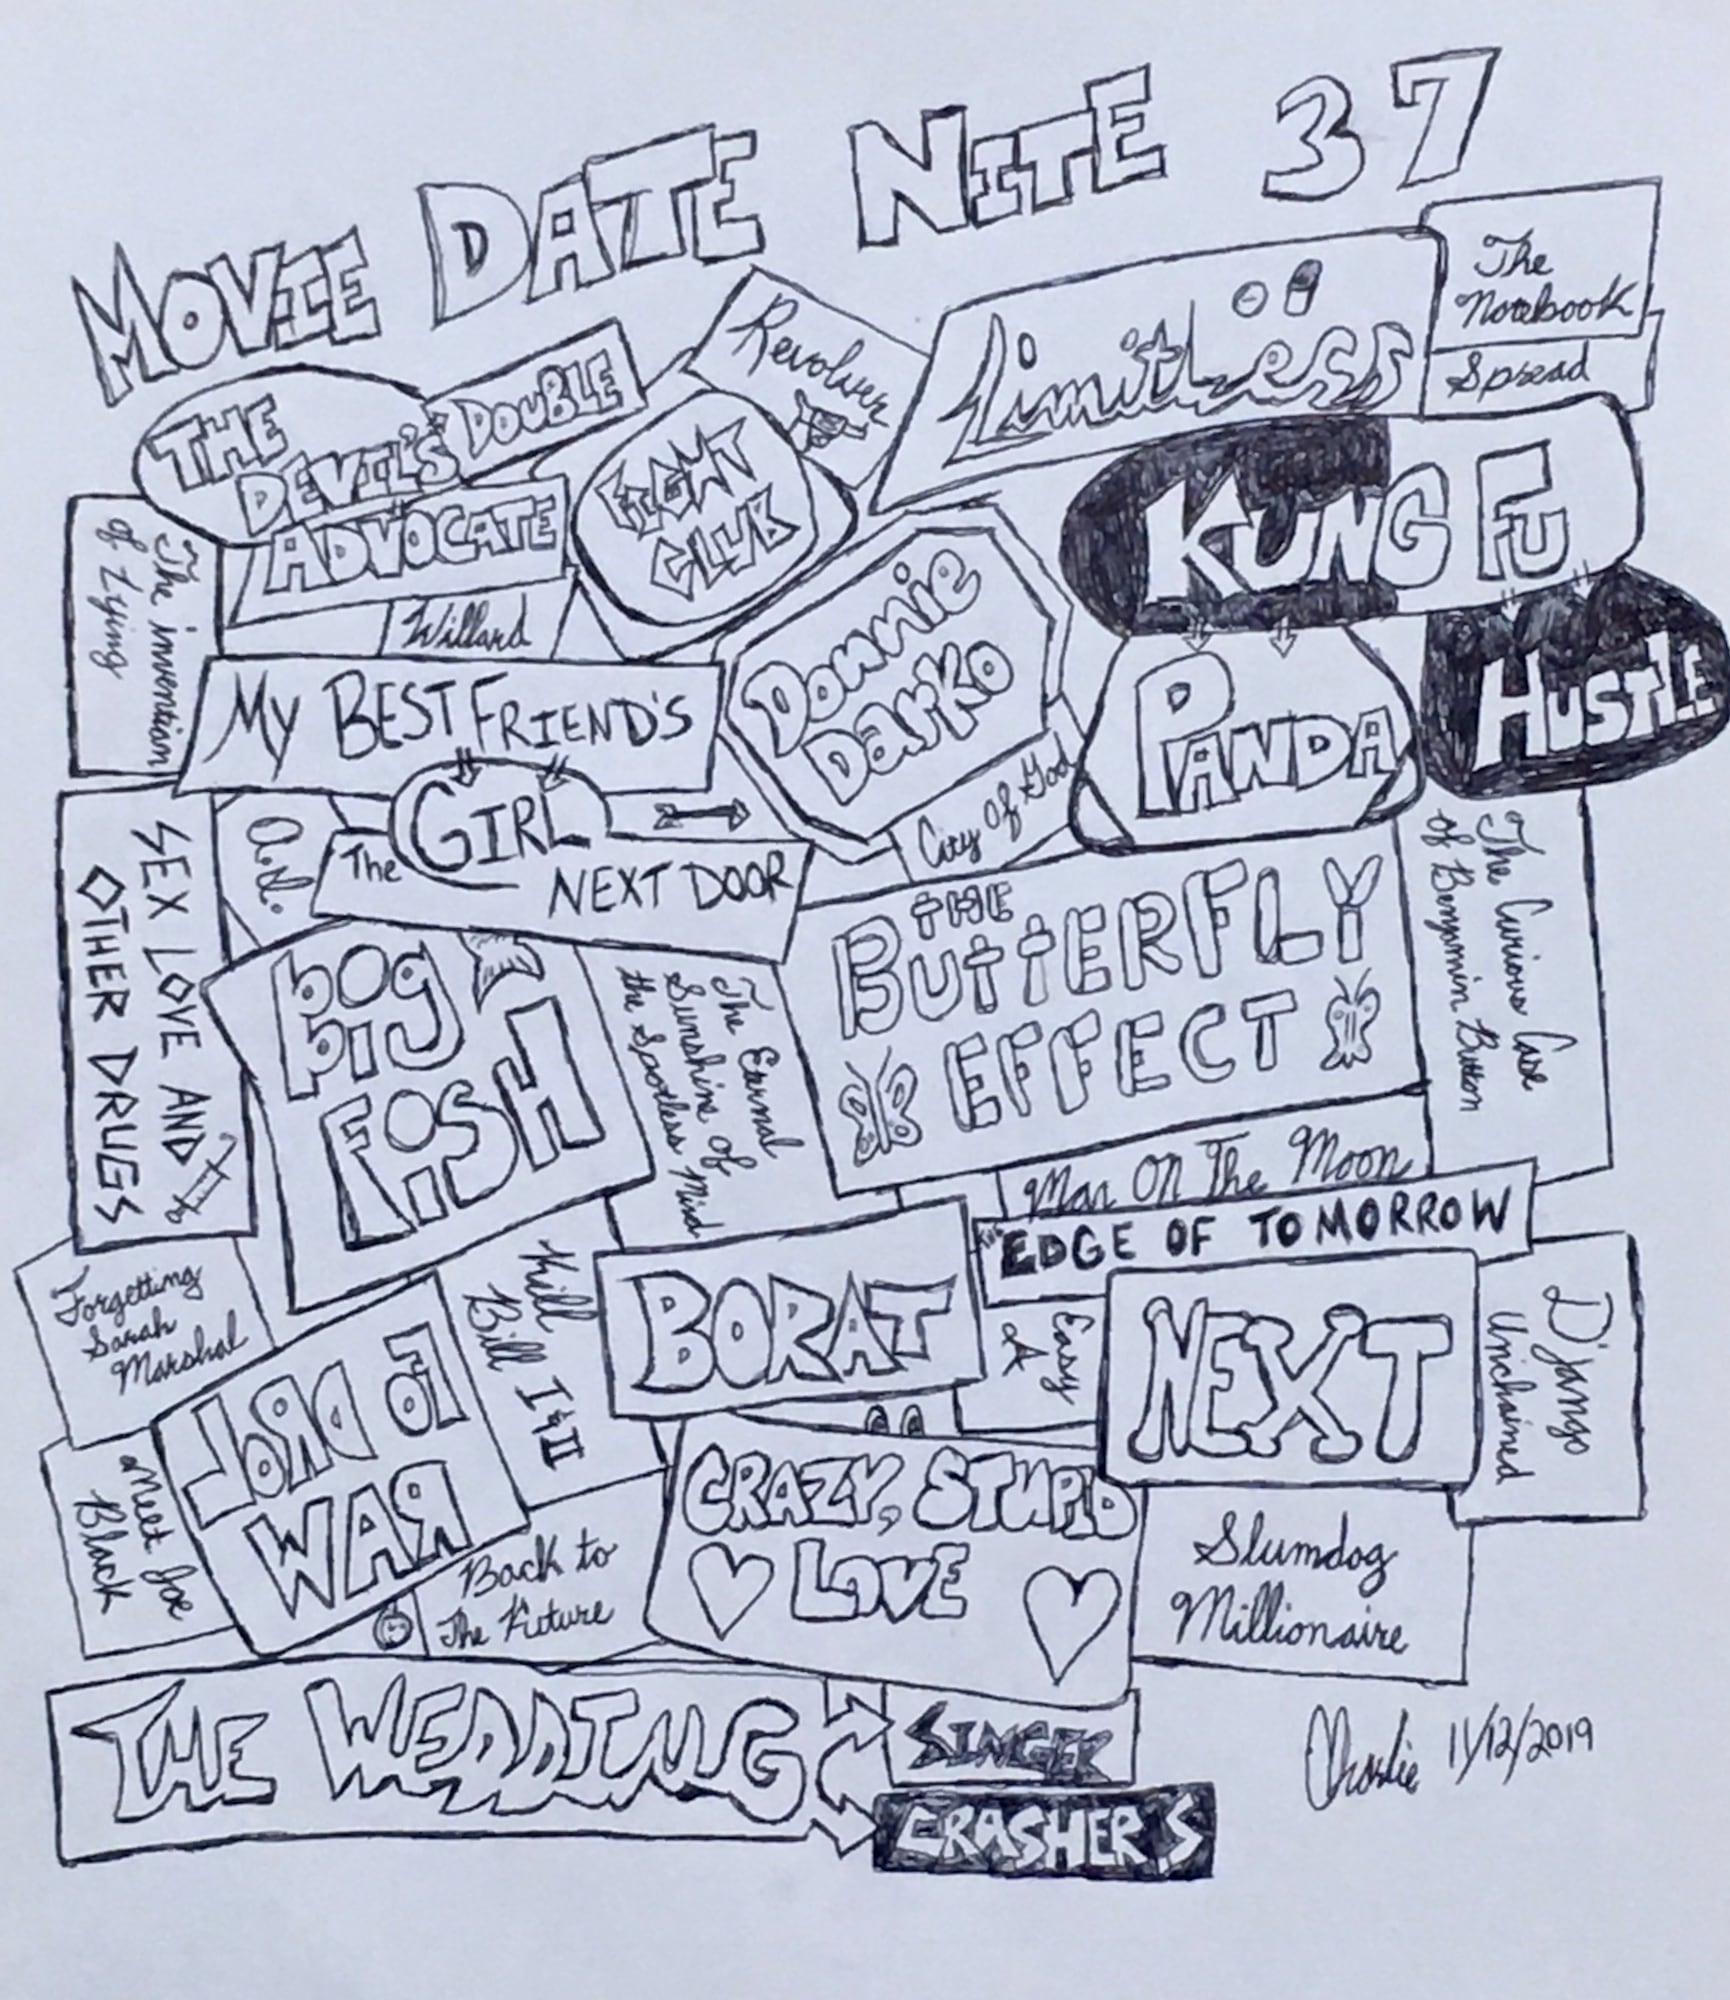 MOVIE DATE NITE 37
The
Notebook
Spread
Limitless
Revolver
THE
DEVIL'S
DOUBLE
ADVOCATE
FIGHT
CLUB
KUNG FU
PANDA
HUSTLE
The invention
of Lying
Willard
Donnie
Darko
MY BEST FRIEND'S
GIRL
The
NEXT DOOR
City Of God
SEX LOVE AND
OTHER DRUGS
A.I.
THE
BUTTERFLY
EFFECT
The Curious Case
of Benjamin Button
Big
FISH
The Eternal
Sunshine of
the Spotless Mind
Man On The Moon
EDGE OF TOMORROW
Forgetting
Sarah
Marshal
Kill
Bill I & II
BORAT
Easy
A
NEXT
D'jango
Unchained
LORD OF
WAR
Meet Joe
Black
Back to
The Future
CRAZY, STUPID
LOVE
Slumdog
Millionaire
THE WEDDING
SINGER
CRASHER'S
Charlie 11/12/2019